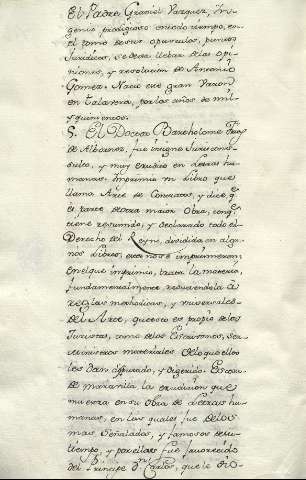 El Padre Gabriel Vazquez, In-
genio prodigioso en todo tiempo, en
el tomo de sus opusculos, puntos
Juridicos, se dexa llebar de las opi-
niones, y resolucion de Antonio
Gomez. Nacio este gran Varon
en Talavera, por los años de mil
y quinientos.
5. El Doctor Bartholome
de Albornoz, fue insigne Jurisconsulto,
sulto, y muy erudito en letras hu-
manas. Imprimio un Libro que
llama Arte de Contratos, y dice q
es parte de otra maior obra, conq
tiene resumido, y declarado todo el
Derecho del Reyno, dividida en algu-
nos Libros, estos no se imprimieron,
en el que imprimio, trata la materia,
fundamentalmente resolviendola à
reglas methodicas, y universales
del Arte, que esto es propio de los
Juristas, como de los Escrivanos, ser
ministros materiales de lo que ellos
les dan apurado, y digerido. Es co-
sa de maravilla la erudicion que
muestra en su obra de Letras hu-
manas, en las quales fue de los
mas señalados, y famosos de su
tiempo, y por ellas fue favorecido
del Principe Dn Carlos, que le dio